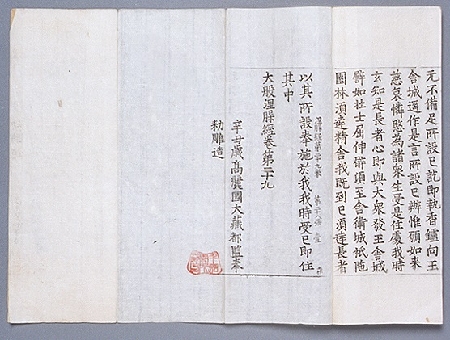 无不備足所設已訖即執香鑪向王
舍城遥作是言所設已辦惟願如来
慈哀憐愍為諸衆生受是住處我時
玄知是長者心即與大衆發王舍城
譬如壮士屈伸臂頃至舍衛城祇陁
園林須達精舍我既到已須達長者
以其所設奉施於我我時受已即住
其中
大般涅槃經卷第二十九
辛丑歳高麗國大藏都監奉
勅雕造